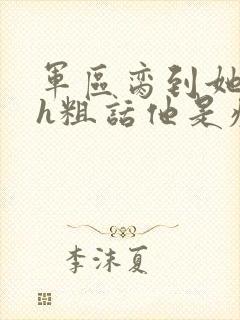 軍區蠻到她
h粗話他是
李沫夏